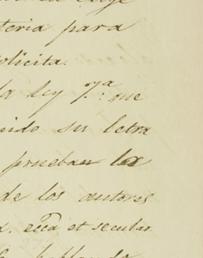 teria para
olicita.
la ley 7.ª: que
uido su letra
prueban la
de los autores
et secular